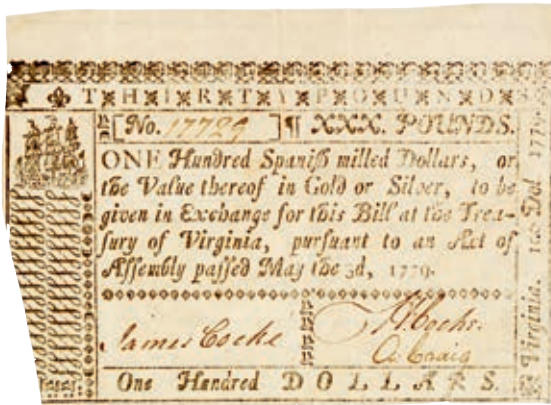 THIRTY POUNDS
[No. 17729 ] ¶ XXX. POUNDS.
ONE Hundred Spanish milled Dollars, or
the Value thereof in Gold or Silver, to be
given in Exchange for this Bill at the Trea-
sury of Virginia, pursuant to an Act of
Assembly passed May the 3d, 1779.
James Cocke
A. Craig
One Hundred DOLLARS.
Virginia. 100 Dol 1779.